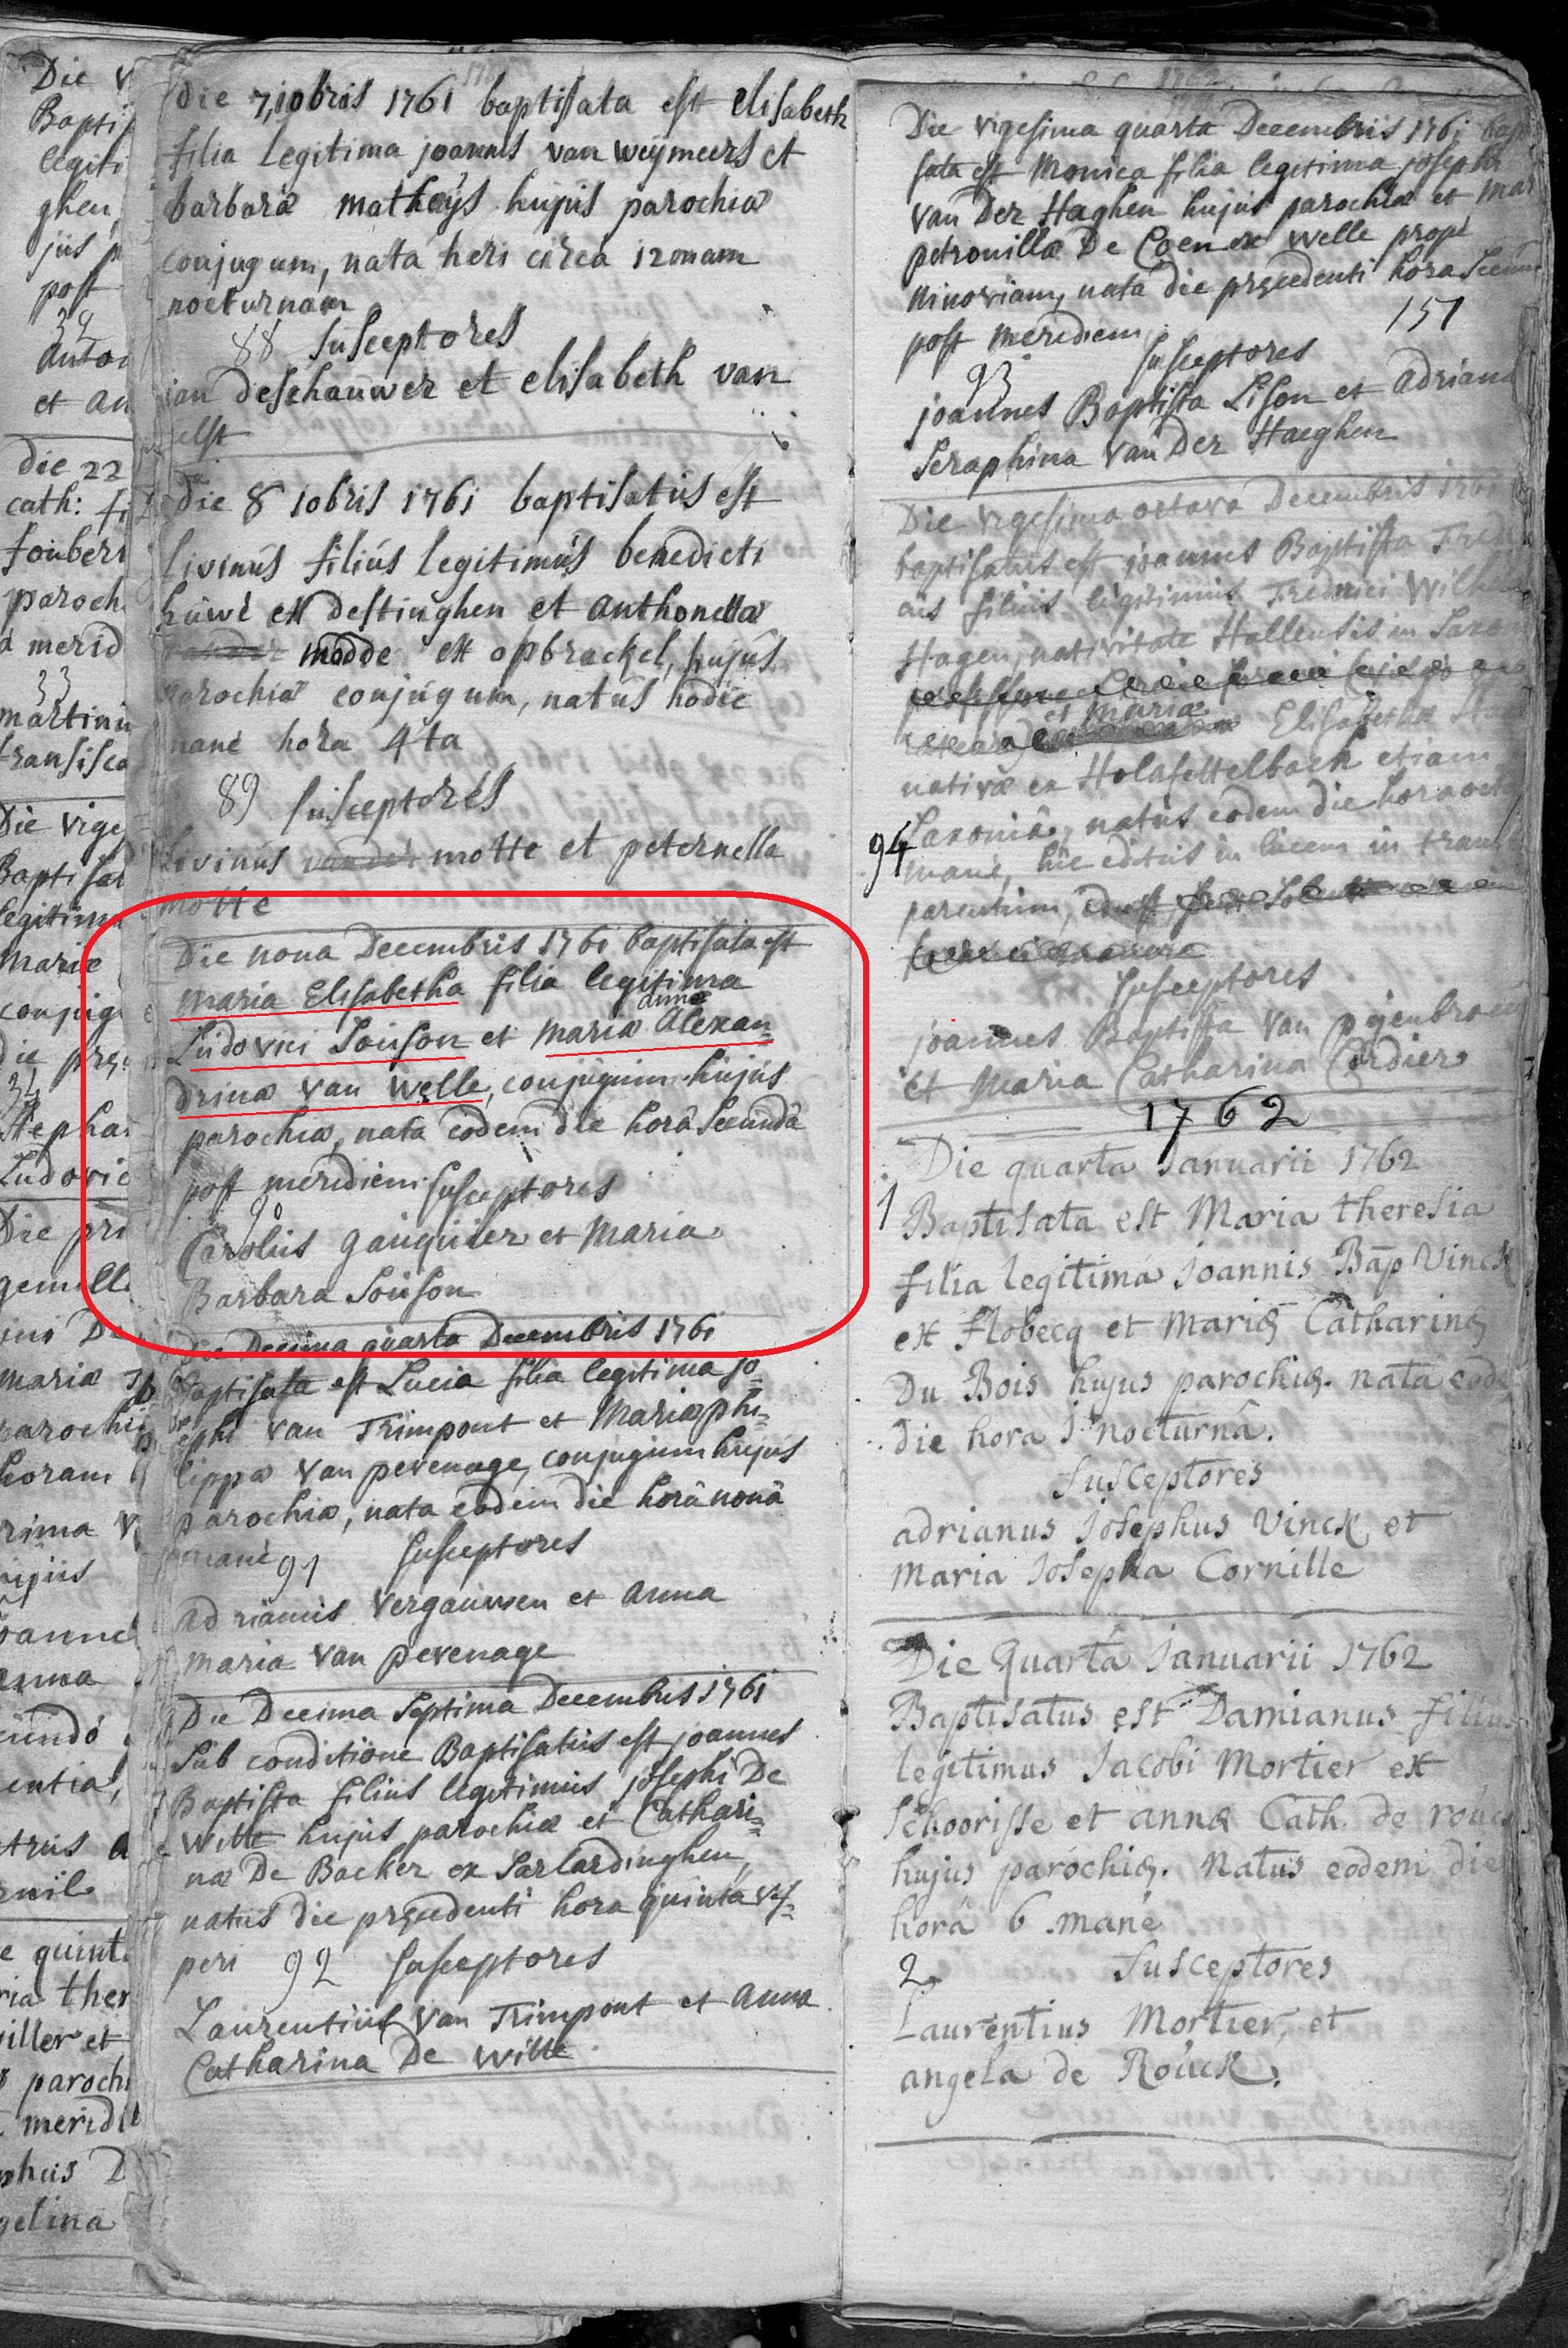 Die
Baptis
legiti
ghen,
jus p
post
39
Anton
et an
die 22
cath: fi
foubert
paroch
a merid
33
martinu
fransisca
Die vige
Baptisat
legitima
Maria
conjug
die prę
34
Stepha
Ludovic
Die pri
gemelle
ini De
maria
parochi
horam
rima v
hujus
oanne
anna
cundo
entia,
trus
rnil
e quinta
ria ther
iller et
parochi
meridi
phus D
gelina
die 7,10bris 1761 baptisata est elisabeth
filia legitima joannis van weijmeers et
barbaræ matheijs hujus parochiæ
conjugum, nata heri circa 12mam
nocturnam
88 susceptores
jan deschauwer et elisabeth van
elst
die 8 10bris 1761 baptisatus est
livinus filius legitimus benedicti
huwé ex destinghen et anthonellæ
modde ex opbrackel, hujus
parochiæ conjugum, natus hodie
mane hora 4ta
89 susceptores
livinus vander motte et peternella
motte
Die nona Decembris 1761 baptisata est
maria Elisabetha filia legitima
anna
Ludovici Souson et mariæ Alexan=
drinæ van welle, conjugum hujus
parochiæ, nata eodem die horâ secundâ
post meridiem susceptores
90
Carolus gauquier et maria
Barbara Souson
Die Decima quarta Decembris 1761
Baptisata est Lucia filia legitima jo=
sephi van Trimpont et Mariæ phi=
lippæ van pevenage, conjugum hujus
parochiæ, nata eodem die horâ nonâ
mane 91 susceptores
adrianus vergauwen et anna
maria van pevenage
Die Decima septima Decembris 1761
sub conditione Baptisatus est joannes
Baptista filius legitimus josephi De
witte hujus parochiæ et Cathari=
næ De Backer ex Sarlardinghen,
natus die pręcedenti hora quinta ves=
peri 92 susceptores
Laurentius van Trimpont et anna
Catharina De witte
Die vigesima quarta Decembris 1761 bapti
sata est Monica filia legitima josephi
van Der Haghen hujus parochiæ et mar
petronillæ De Coen ex welle propé
Ninoviam, nata die pręcedenti hora secun
post meridiem
151
93 susceptores
joannes Baptista Lison et adriana
Seraphina van Der Haeghen
Die vigesima octava Decembris 1761
baptisatus est joannes Baptista Fred
cus filius legitimus Frederici Wilh
Hagen, nativitate Hallensis in Saxo
et Maria
Elisabethæ
nativæ ex Holdsettelbach etiam
Saxoniâ, natus eodem die hora octa
94
mane, hic editus in lucem in trans
parentum,
susceptores
joannes Baptista Van pijenbroeck
et Maria Catharina Cordier
1762
Die quarta Januarii 1762
1
Baptisata est Maria theresia
filia legitima Joannis Bap Vinck
ex Flobecq et Marię Catharinę
Du Bois hujus parochię. nata eode
die hora 1 nocturnâ.
Susceptores
adrianus Josephus Vinck et
Maria Josepha Cornille
Die Quarta Januarii 1762
Baptisatus est Damianus filius
legitimus Jacobi Mortier ex
Schoorisse et annæ Cath. de rouck
hujus parochię. Natus eodem die
horâ 6 mane
2 Susceptores
Laurentius Mortier, et
angela de Rouck.